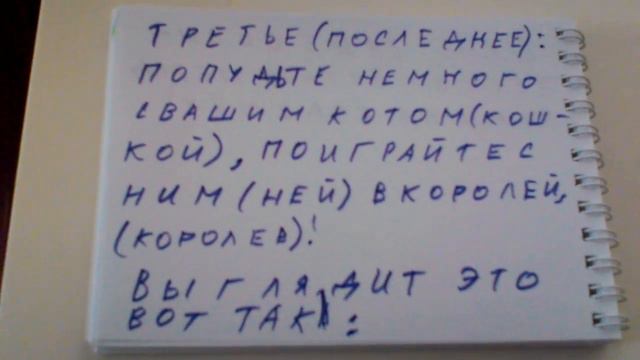 ТРЕТЬЕ (ПОСЛЕДНЕЕ):
ПОПУДЬТЕ НЕМНОГО
С ВАШИМ КОТОМ (КОШ-
КОЙ), ПОИГРАЙТЕ С
НИМ (НЕЙ) В КОРОЛЕЙ,
(КОРОЛЕВ)!
ВЫГЛЯДИТ ЭТО
ВОТ ТАК: